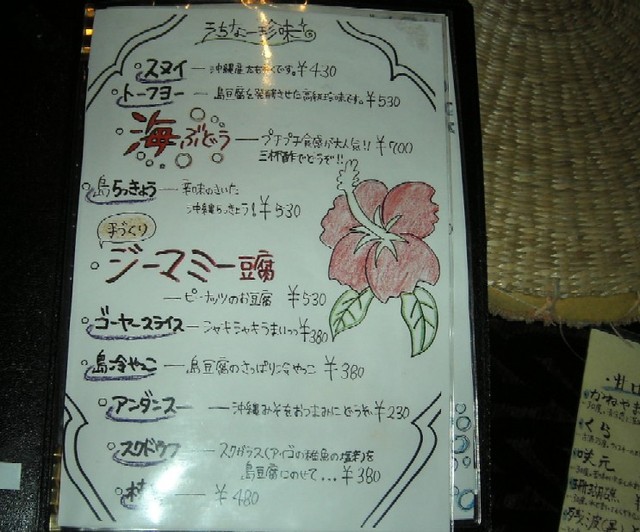 うちなー珍味
スヌイ ― 沖縄産太もずくです。¥430
トーフヨー ― 島豆腐を発酵させた高級珍味です。¥530
海ぶどう ― プチプチ食感が大人気!! ¥700
三杯酢でどうぞ!!
島らっきょう ―
沖縄らっきょう! ¥530
手づくり
ジーマミー豆腐
― ピーナッツのお豆腐 ¥530
ゴーヤースライス ― シャキシャキうまいっっ ¥380
島冷やっこ ― 島豆腐のさっぱり冷やっこ ¥380
アンダンスー ― 沖縄みそをおつまみにどうぞ。¥230
スクドウフ ― スクガラス(アイゴの稚魚の塩辛)を
島豆腐にのせて... ¥380
¥480
かねやま
くら
味元